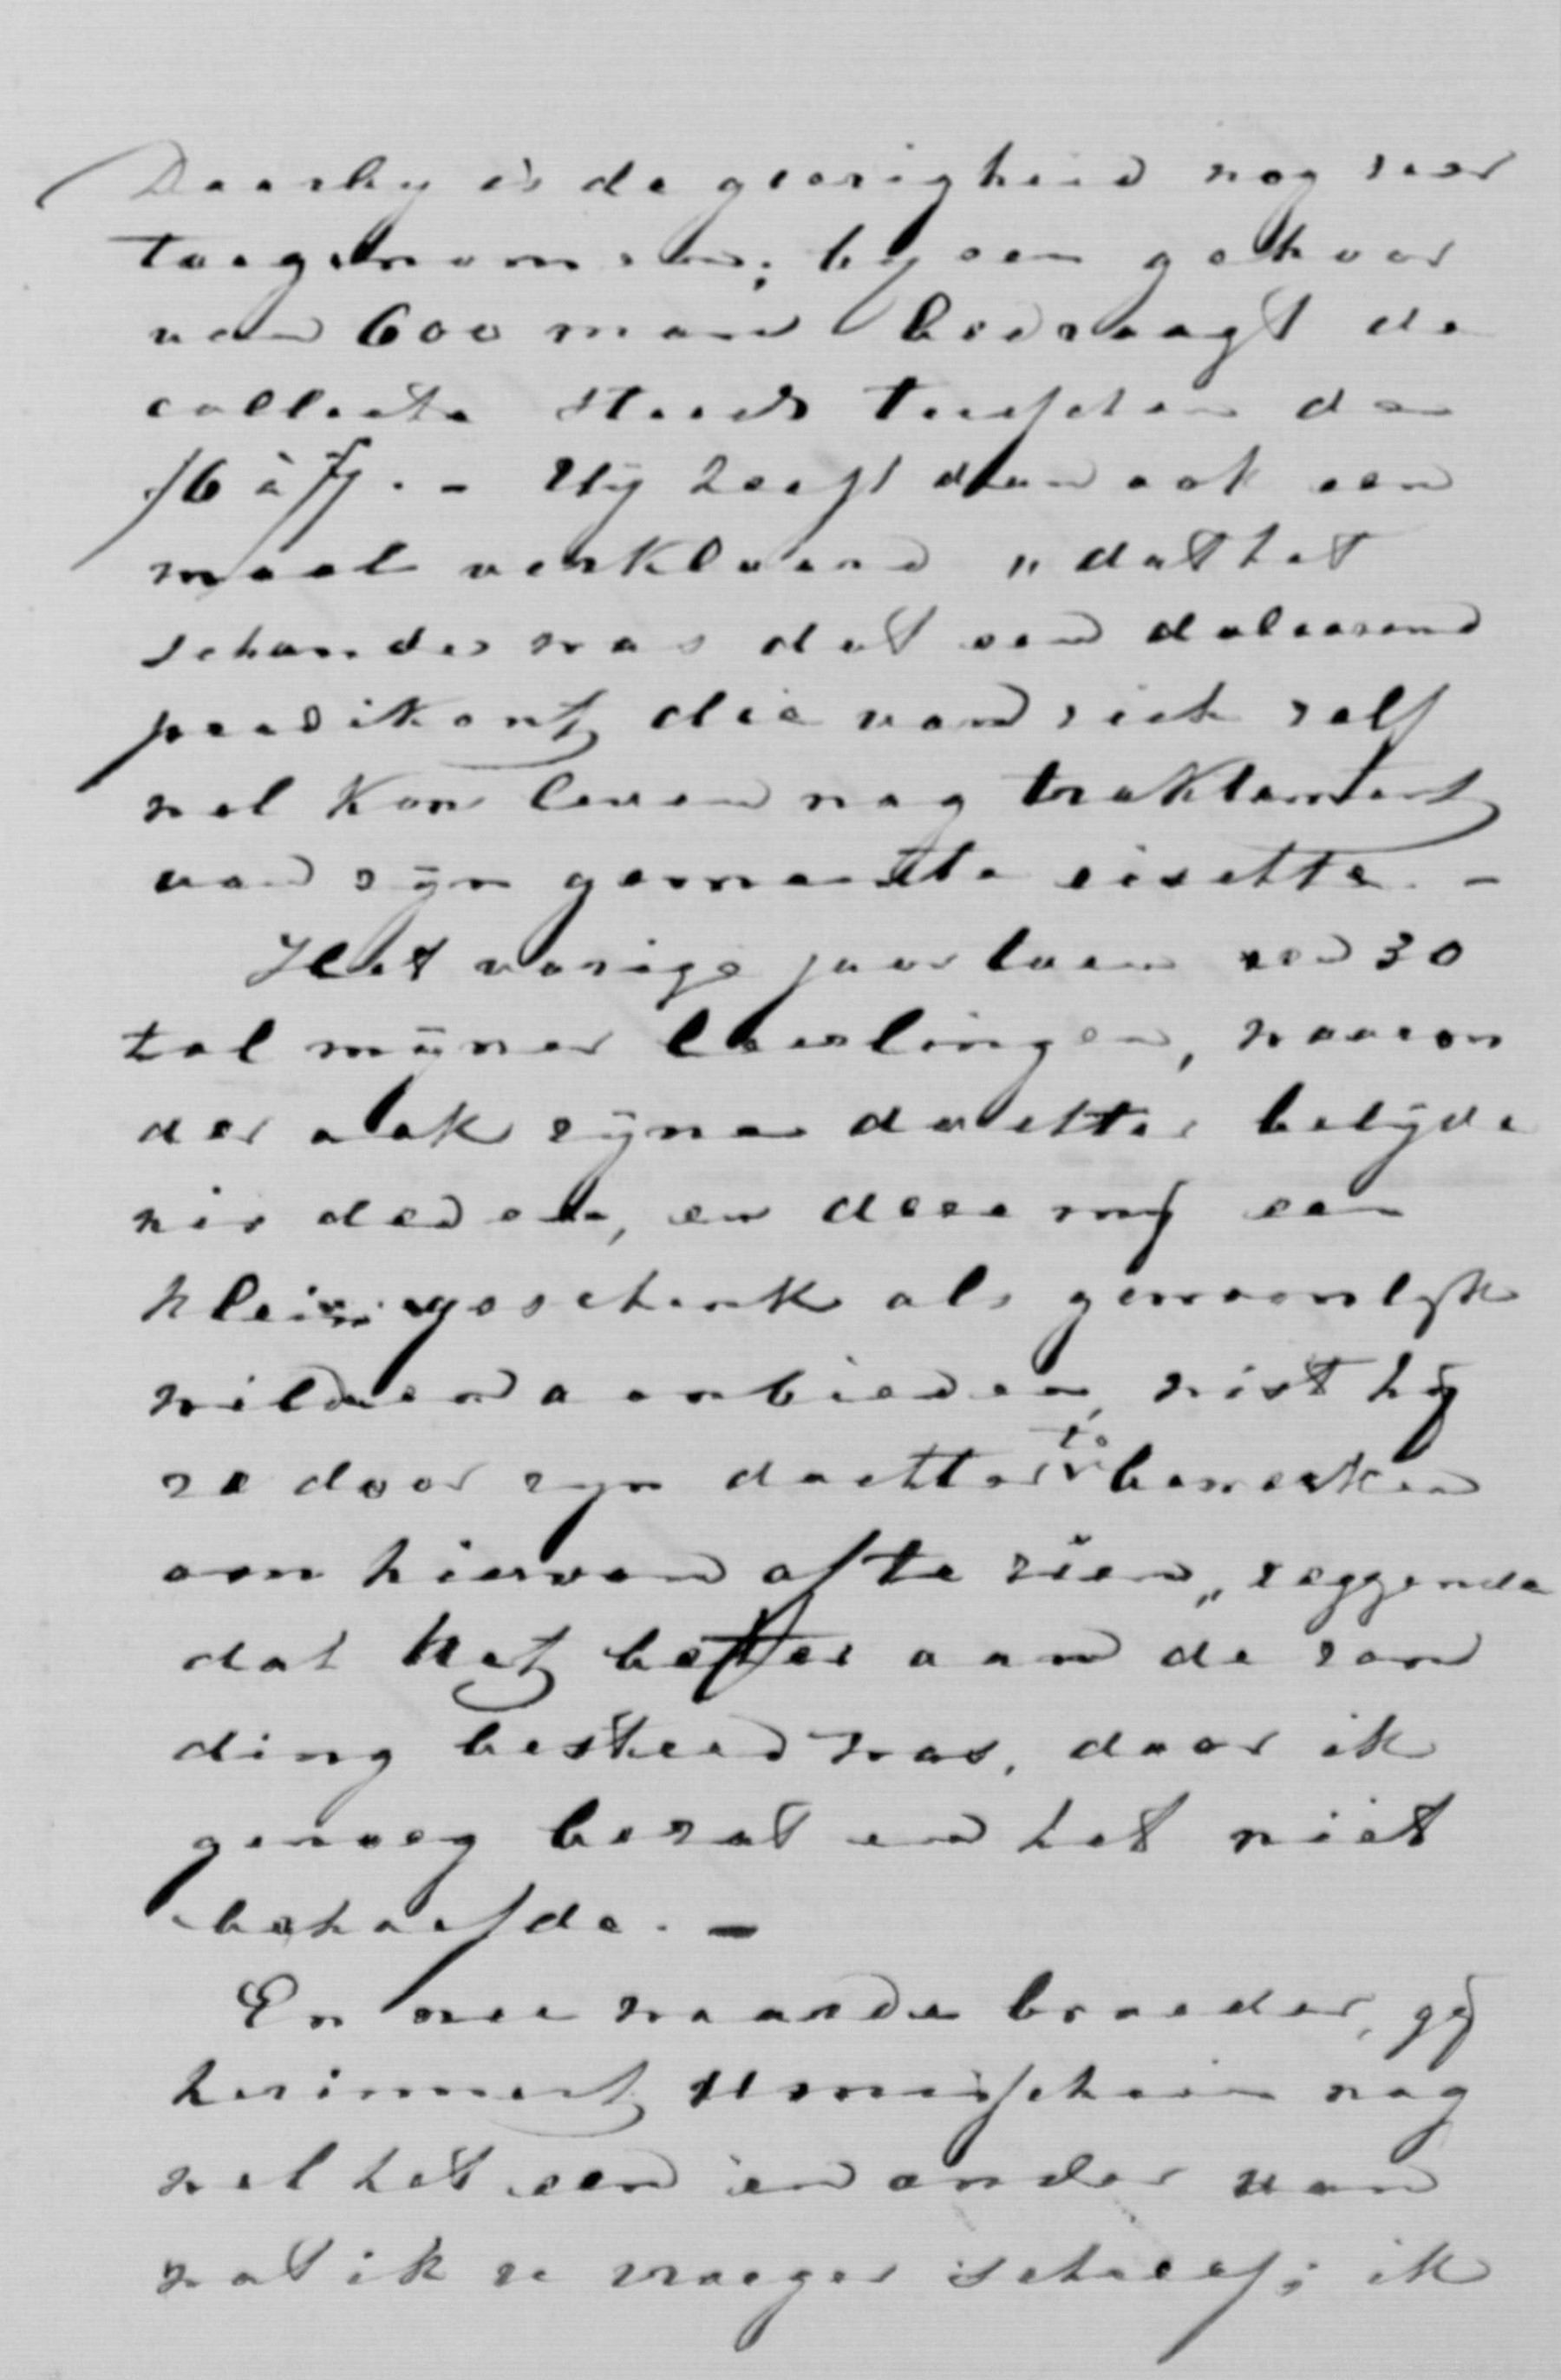 Daarby is de gierigheid nog zeer
toegenomen; by een gehoor
van 600 man bedraagt de
collecte steeds tusschen de
f6 à f7. - Hij heeft dan ook een
maal verklaard „dat het
schande was dat een doleerend
predikant die van zich zelf
wel kon leven nog traktement
van zijn gemeente eischte. -
Het vorige jaar toen een 30
tal mijner leerlingen, waaron
der ook zijne dochter belijde
nis deden, en deze mij een
klein geschenk als gewoonlijk
wilden aanbieden, wist hij
ze door zijn dochter te bewerken
om hiervan af te zien, „zeggende
dat het beter aan de zen
ding besteed was, daar ik
genoeg bezat en het niet
behoefde. -
En nu waarde broeder, gij
herinnert U misschien nog
wel het een en ander van
wat ik u vroeger schreef; ik